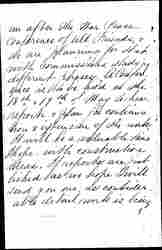 um after the War Peace
Conference of all Friends,
do are planning for that
with Commissions studying
different phases. A Confer
ence is to be held on the
18th & 19th of May to hear
reports & plan for continua
tion & extension of the work.
It will be a valuable
hope with constructive
ideas. If reports are pub
lished as we hope I will
send you one, so consider
able detail work is being